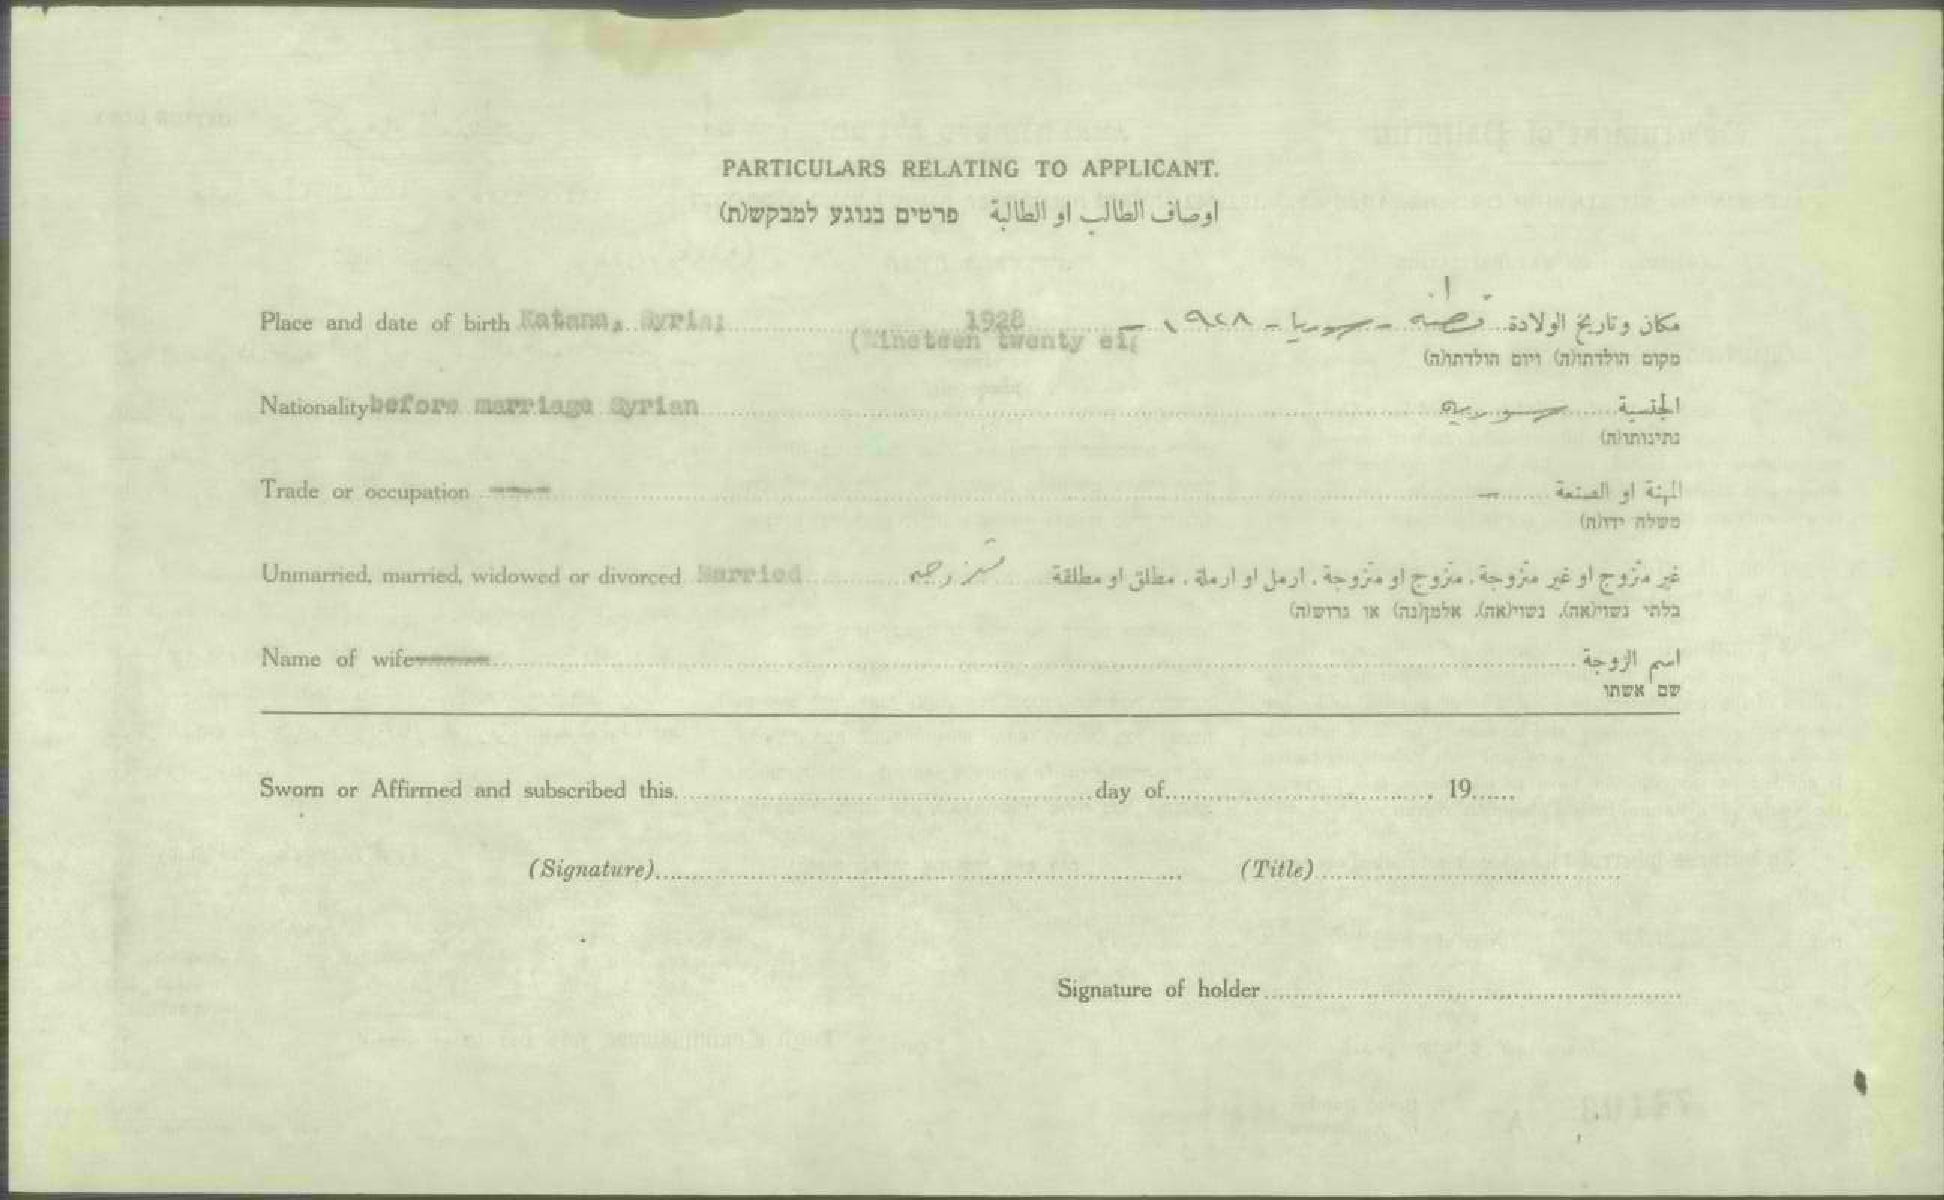 PARTICULARS RELATING TO APPLICANT.
اوصاف الطالب او الطالبة פרטים בנוגע למבקש(ת)
Place and date of birth Katana, Syria; 1928 — ١٩٢٨ - سوريا - قطنه مكان وتاريخ الولادة
(Nineteen twenty ei
מקום הולדתו(ה) ויום הולדתו(ה)
Nationality before marriage Syrian سوريه الجنسية
נתינותו(ה)
Trade or occupation ---- — المهنة او الصنعة
משלח ידו(ה)
Unmarried, married, widowed or divorced Married متزوجه غير متزوج او غير متزوجة، متزوج او متزوجة، ارمل او ارملة، مطلق او مطلقة
בלתי נשוי(אה), נשוי(אה), אלמן(נה) או גרוש(ה)
Name of wife ----- اسم الزوجة
שם אשתו
Sworn or Affirmed and subscribed this day of 19
(Signature) (Title)
Signature of holder